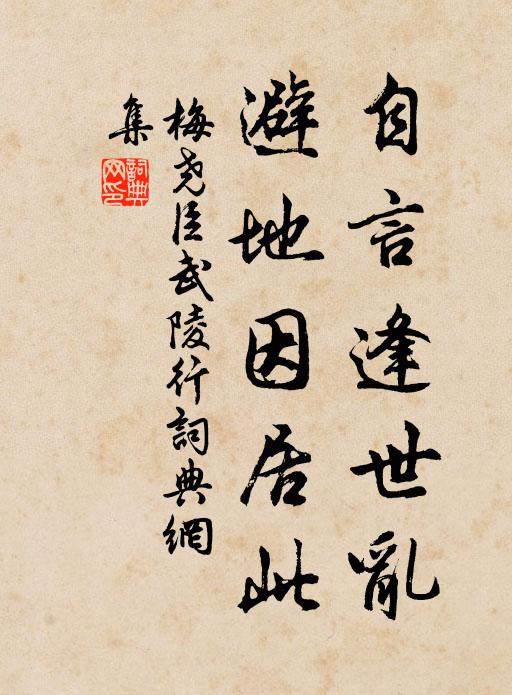 自言逢世亂
避地因居此
梅堯臣武陵行詞典網
集
詞典
网印